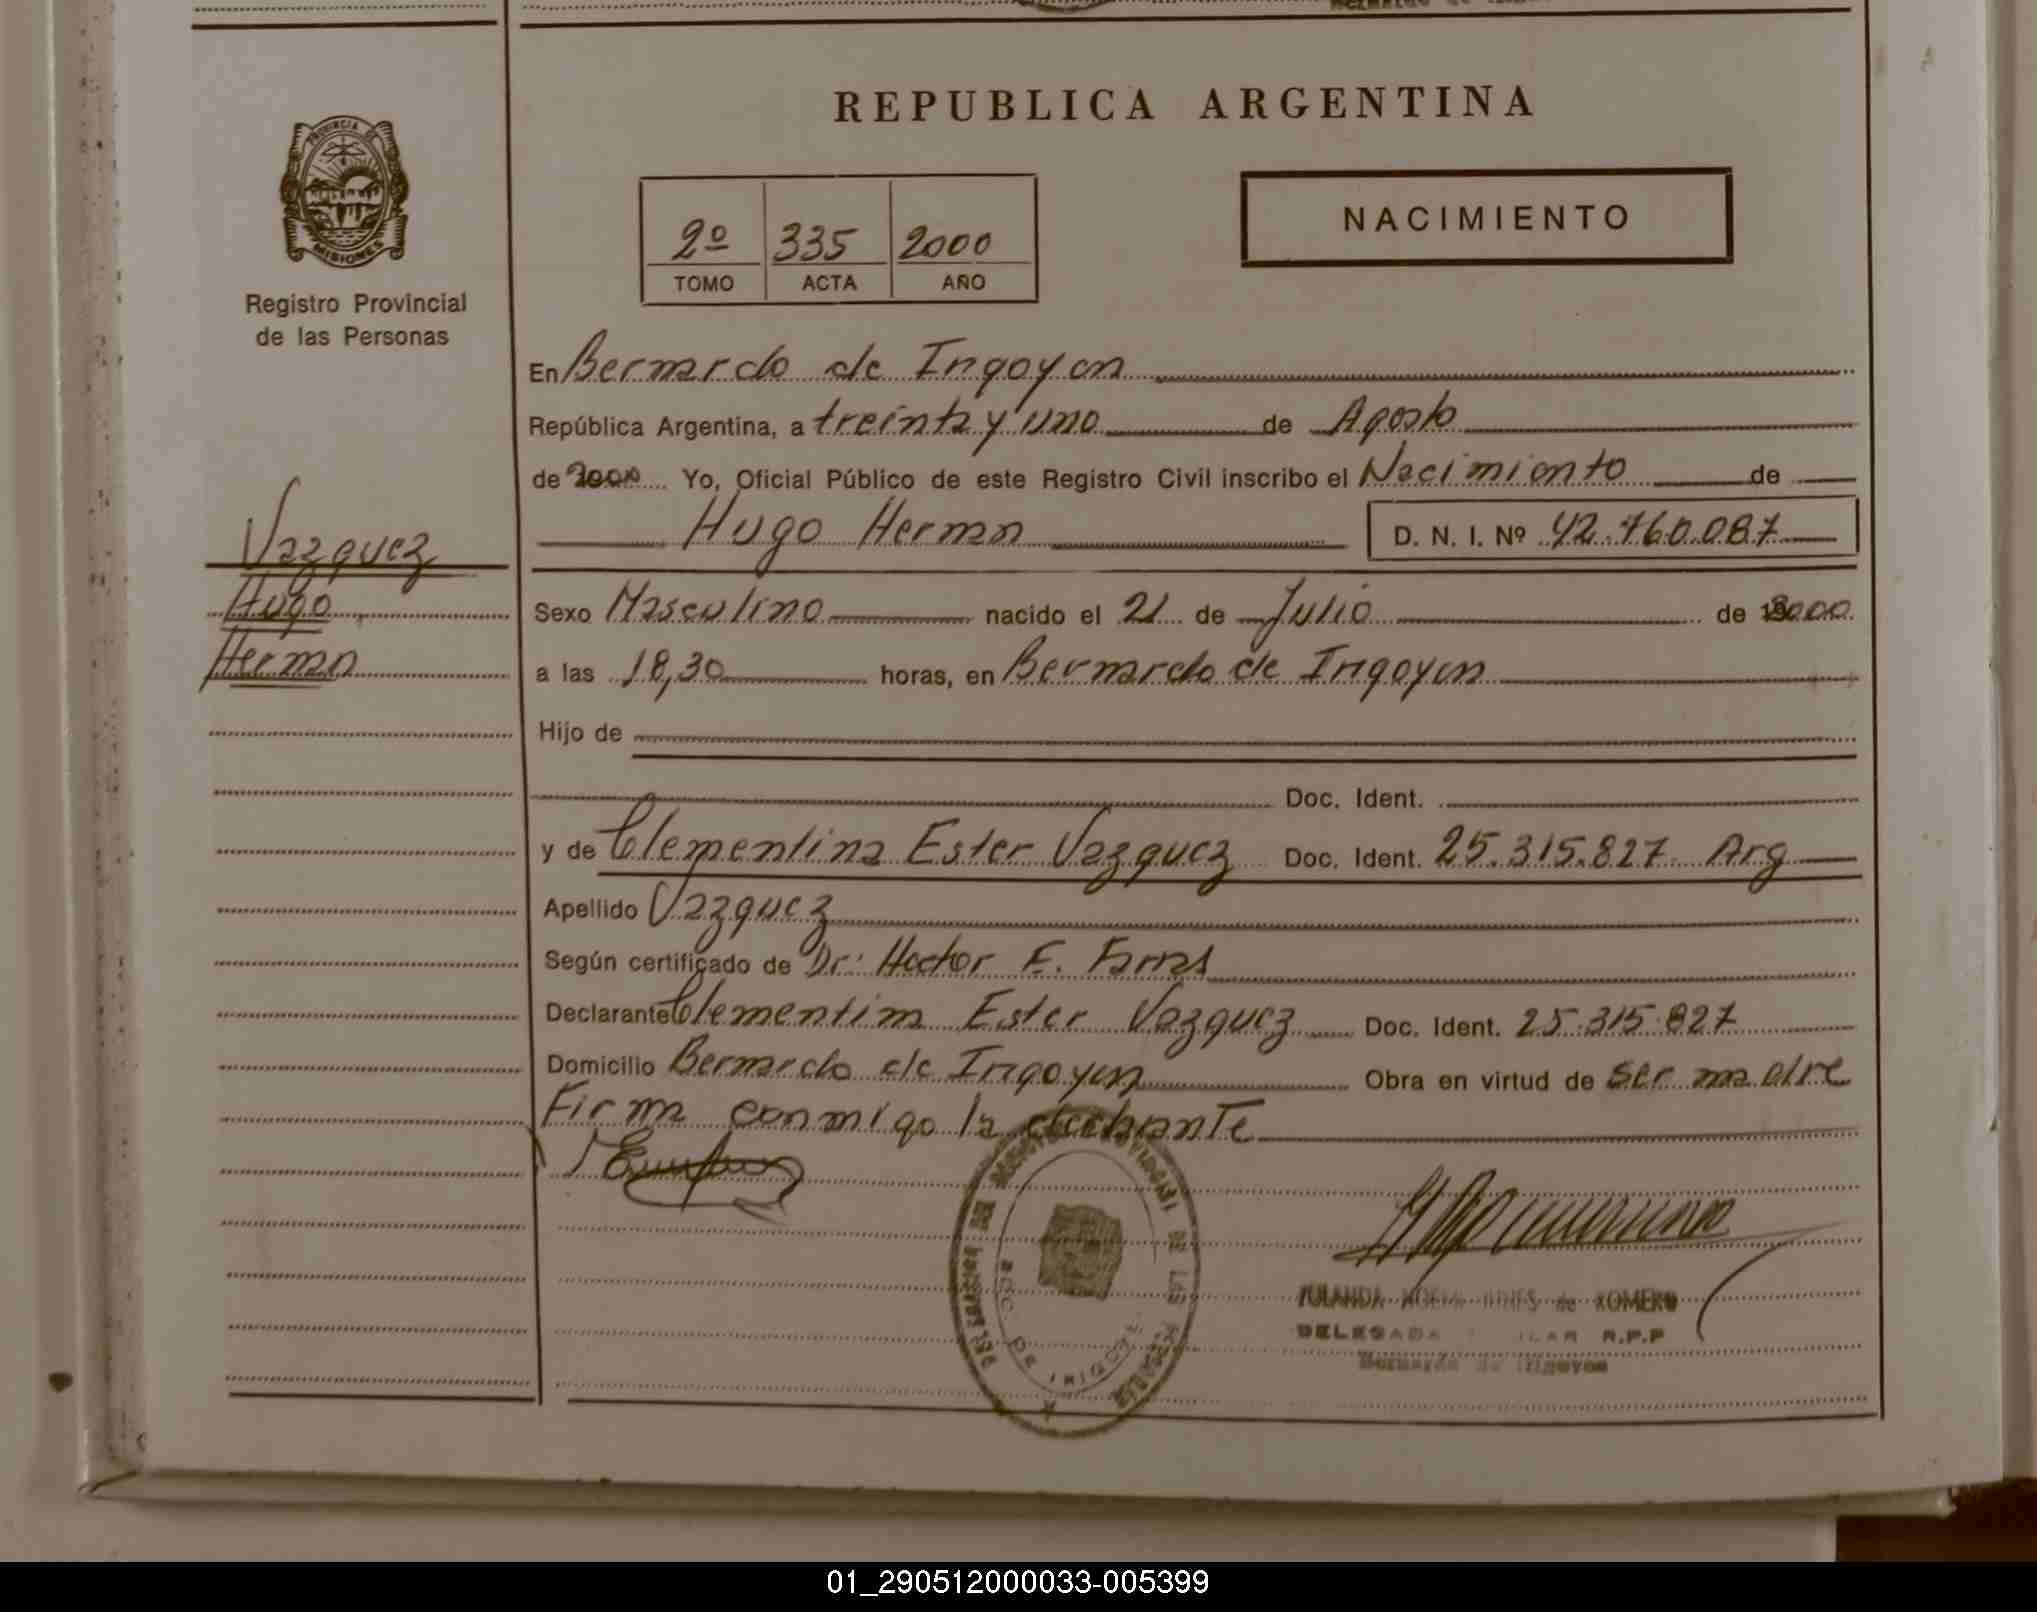 REPUBLICA ARGENTINA
PROVINCIA DE
MISIONES
Registro Provincial
de las Personas
2º 335 2000
TOMO ACTA AÑO
NACIMIENTO
Vazquez
Hugo
Hernan
En Bernardo de Irigoyen
República Argentina, a treinta y uno de Agosto
de 2000 Yo, Oficial Público de este Registro Civil inscribo el Nacimiento de
Hugo Hernan D. N. I. Nº 42.760.087
Sexo Masculino nacido el 21 de Julio de 2000
a las 18,30 horas, en Bernardo de Irigoyen
Hijo de
Doc. Ident.
y de Clementina Ester Vazquez Doc. Ident. 25.315.827 Arg
Apellido Vazquez
Según certificado de Dr. Hector E.
Declarante Clementina Ester Vazquez Doc. Ident. 25.315.827
Domicilio Bernardo de Irigoyen Obra en virtud de ser madre
Firma conmigo la declarante
DE LAS
DELEGADA R.P.P
Bernardo de Irigoyen
01_290512000033-005399